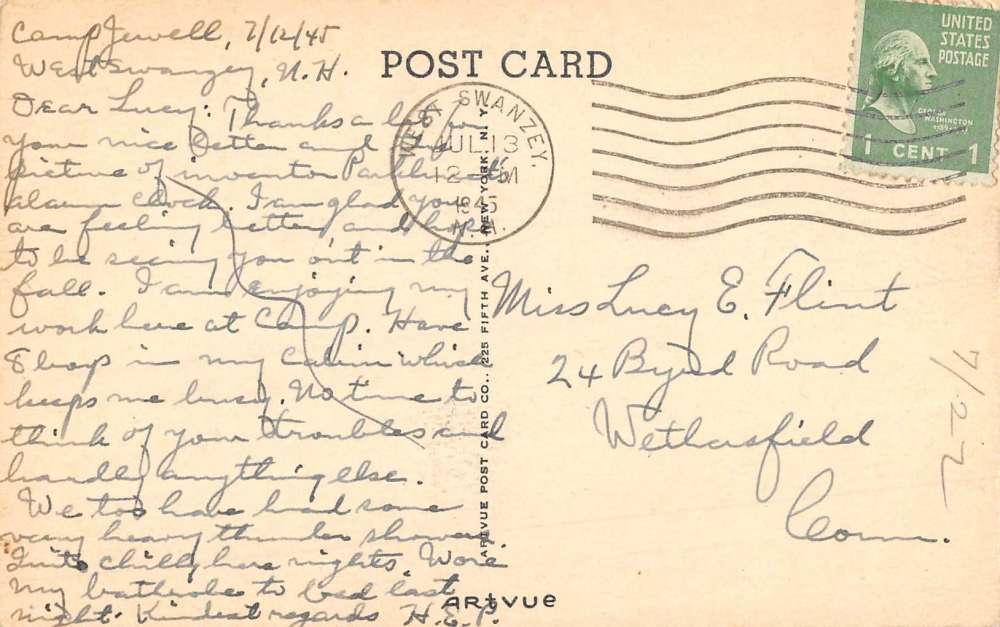 Camp Jewell, 7/12/45
West Swanzey, N.H.
Dear Lucy: Thanks a lot for
your nice letter and the
picture of inventor Parkhurst's
alarm clock. I am glad you
are feeling better and hope
to be seeing you out in the
fall. I am enjoying my
work here at Camp. Have
8 boys in my Cabin which
keeps me busy. No time to
think of your troubles and
hardly anything else.
We too have had some
very heavy thunder showers
Quite chilly here nights. Wore
my bathrobe to bed last
night. Kindest regards H.E.P.
POST CARD
WEST SWANZEY,
JUL 13
12 M
1945
N.H.
UNITED
STATES
POSTAGE
GEORGE
WASHINGTON
1 CENT 1
Miss Lucy E. Flint
24 Byrd Road
Wethersfield
Conn.
7/22
ARTVUE POST CARD CO., 225 FIFTH AVE., NEW YORK, N. Y.
ARTVUE